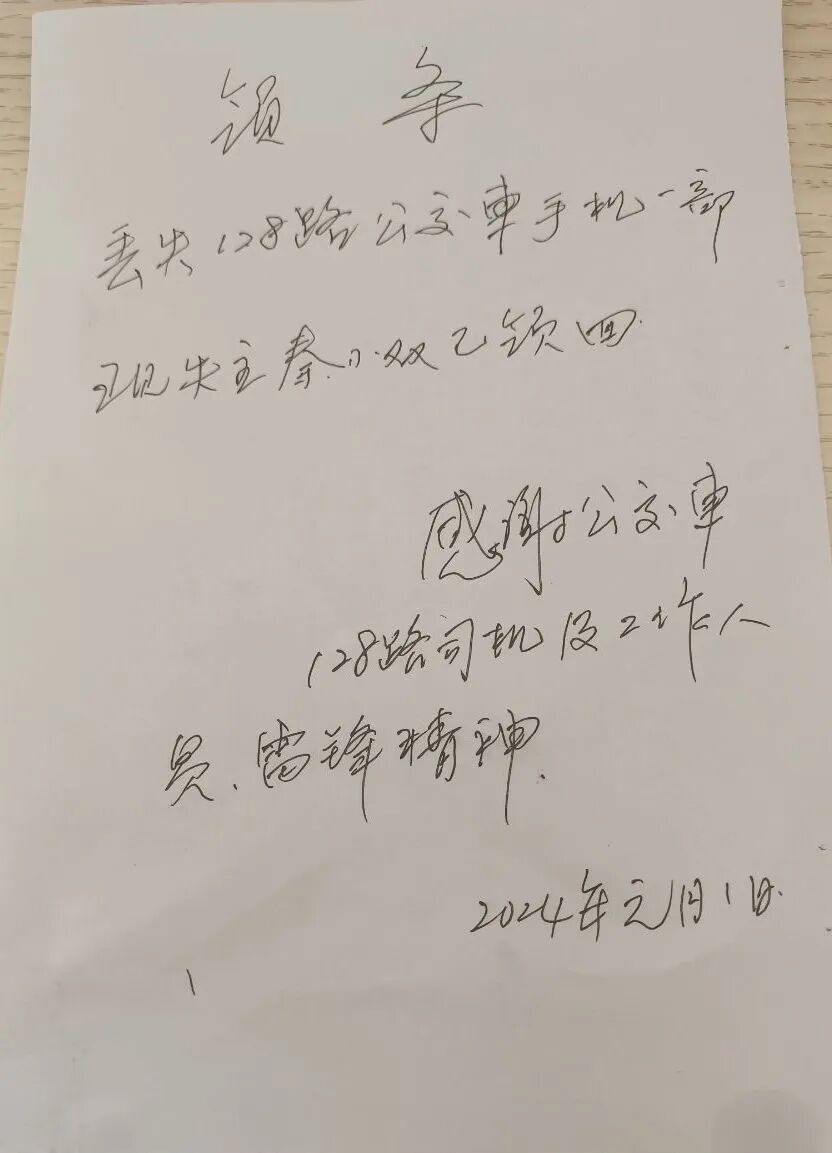 领 条
丢失128路公交車手机一部
现失主秦小双已领回.
感谢公交車
128路司机及工作人
员、雷锋精神.
2024年元月1日.